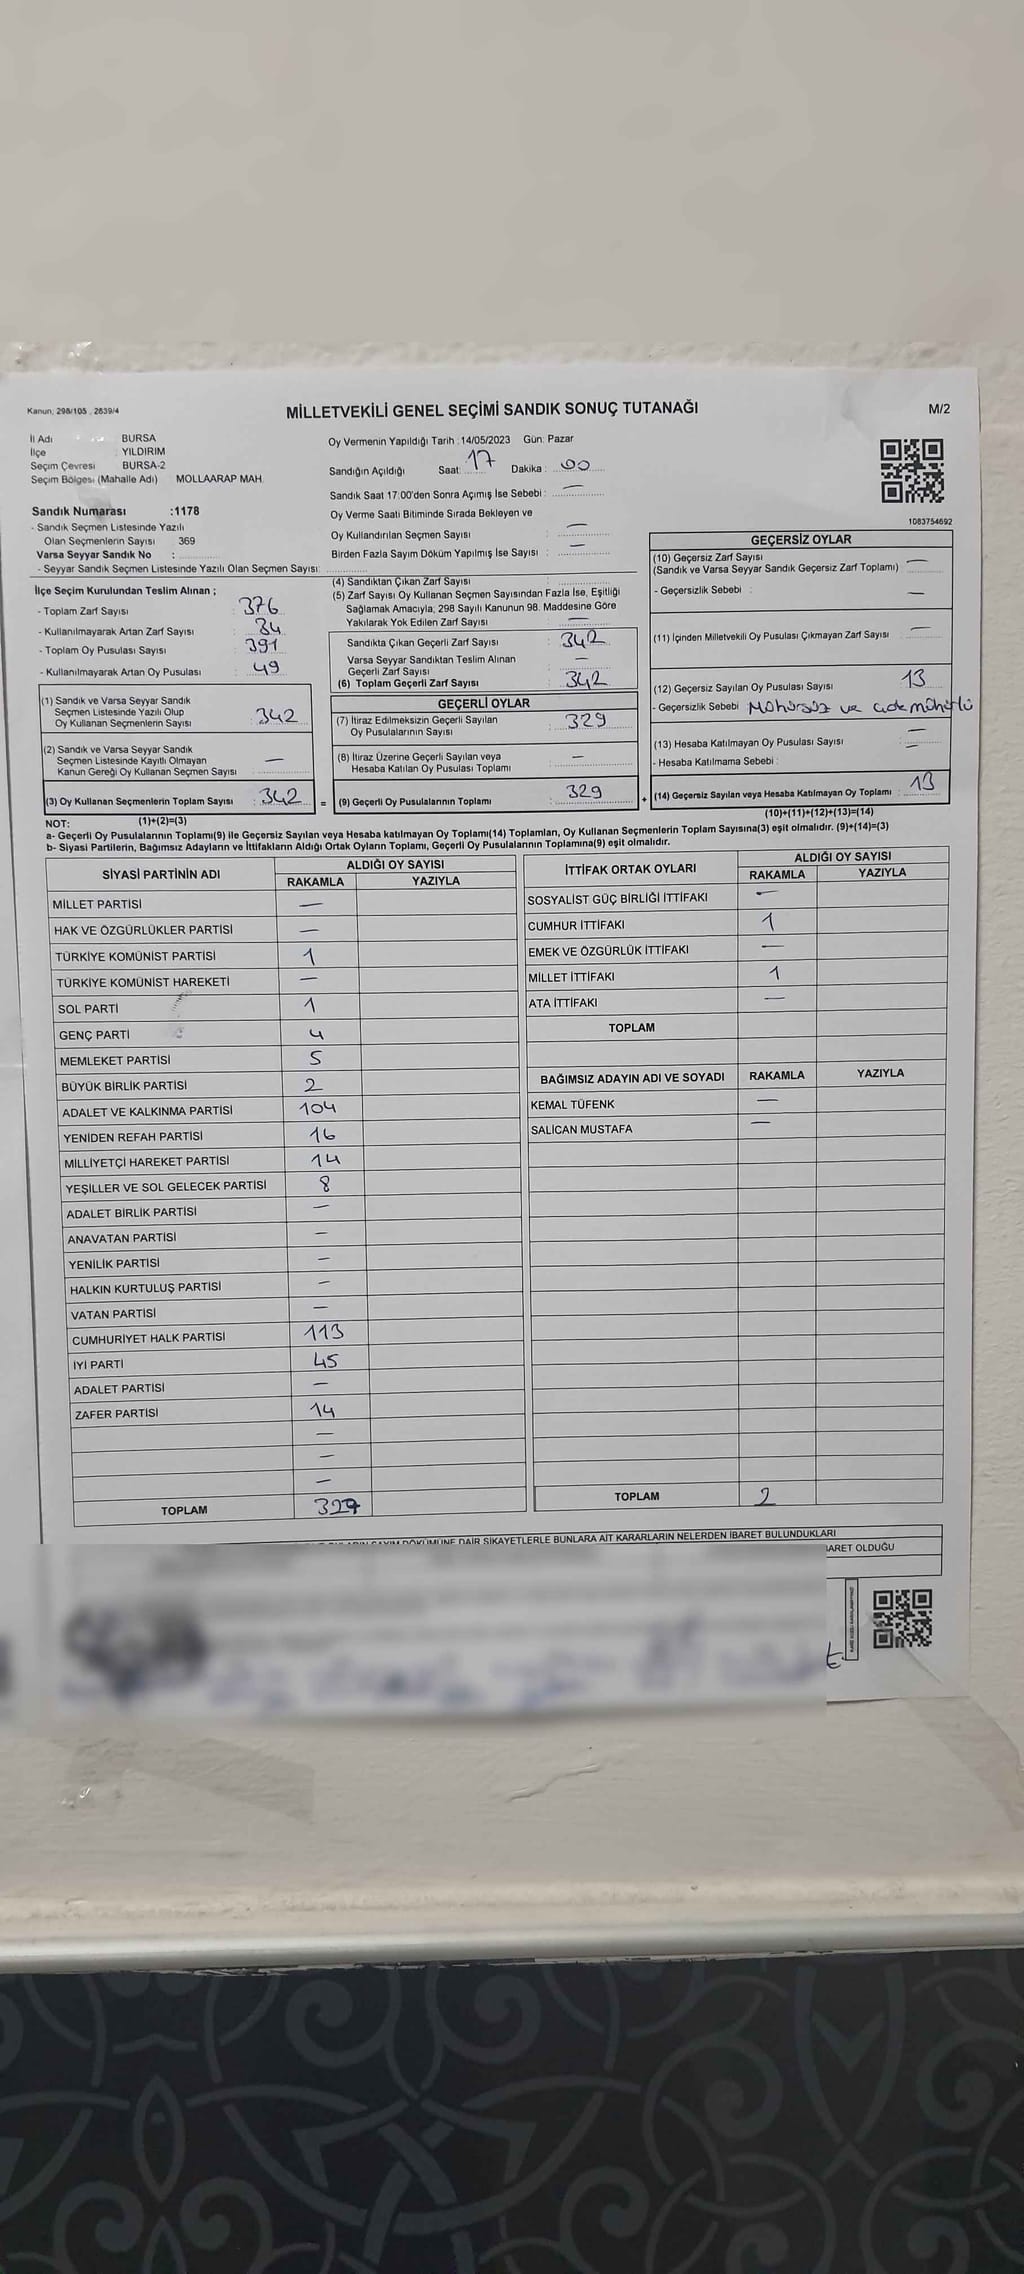 Kanun, 298/105 , 2839/4
MİLLETVEKİLİ GENEL SEÇİMİ SANDIK SONUÇ TUTANAĞI
M/2
İl Adı BURSA
İlçe : YILDIRIM
Seçim Çevresi BURSA-2
Seçim Bölgesi (Mahalle Adı) MOLLAARAP MAH.
Sandık Numarası :1178
- Sandık Seçmen Listesinde Yazılı
Olan Seçmenlerin Sayısı : 369
Varsa Seyyar Sandık No :
- Seyyar Sandık Seçmen Listesinde Yazılı Olan Seçmen Sayısı:
Oy Vermenin Yapıldığı Tarih :14/05/2023 Gün: Pazar
Sandığın Açıldığı Saat: 17 Dakika : 00
Sandık Saat 17:00'den Sonra Açımış İse Sebebi : —
Oy Verme Saati Bitiminde Sırada Bekleyen ve
Oy Kullandırılan Seçmen Sayısı : —
Birden Fazla Sayım Döküm Yapılmış İse Sayısı : —
1083754692
İlçe Seçim Kurulundan Teslim Alınan ;
- Toplam Zarf Sayısı : 376
- Kullanılmayarak Artan Zarf Sayısı : 34
- Toplam Oy Pusulası Sayısı : 391
- Kullanılmayarak Artan Oy Pusulası : 49
(1) Sandık ve Varsa Seyyar Sandık
Seçmen Listesinde Yazılı Olup
Oy Kullanan Seçmenlerin Sayısı : 342
(2) Sandık ve Varsa Seyyar Sandık
Seçmen Listesinde Kayıtlı Olmayan
Kanun Gereği Oy Kullanan Seçmen Sayısı : —
(3) Oy Kullanan Seçmenlerin Toplam Sayısı : 342
(4) Sandıktan Çıkan Zarf Sayısı :
(5) Zarf Sayısı Oy Kullanan Seçmen Sayısından Fazla İse, Eşitliği
Sağlamak Amacıyla, 298 Sayılı Kanunun 98. Maddesine Göre
Yakılarak Yok Edilen Zarf Sayısı : —
Sandıkta Çıkan Geçerli Zarf Sayısı : 342
Varsa Seyyar Sandıktan Teslim Alınan
Geçerli Zarf Sayısı : —
(6) Toplam Geçerli Zarf Sayısı : 342
GEÇERLİ OYLAR
(7) İtiraz Edilmeksizin Geçerli Sayılan
Oy Pusulalarının Sayısı : 329
(8) İtiraz Üzerine Geçerli Sayılan veya
Hesaba Katılan Oy Pusulası Toplamı : —
= (9) Geçerli Oy Pusulalarının Toplamı : 329
GEÇERSİZ OYLAR
(10) Geçersiz Zarf Sayısı —
(Sandık ve Varsa Seyyar Sandık Geçersiz Zarf Toplamı) :
- Geçersizlik Sebebi : —
(11) İçinden Milletvekili Oy Pusulası Çıkmayan Zarf Sayısı : —
(12) Geçersiz Sayılan Oy Pusulası Sayısı : 13
- Geçersizlik Sebebi Mühürsüz ve
(13) Hesaba Katılmayan Oy Pusulası Sayısı : —
- Hesaba Katılmama Sebebi : —
+ (14) Geçersiz Sayılan veya Hesaba Katılmayan Oy Toplamı : 13
NOT: (1)+(2)=(3)
(10)+(11)+(12)+(13)=(14)
a- Geçerli Oy Pusulalarının Toplamı(9) ile Geçersiz Sayılan veya Hesaba katılmayan Oy Toplamı(14) Toplamları, Oy Kullanan Seçmenlerin Toplam Sayısına(3) eşit olmalıdır. (9)+(14)=(3)
b- Siyasi Partilerin, Bağımsız Adayların ve İttifakların Aldığı Ortak Oyların Toplamı, Geçerli Oy Pusulalarının Toplamına(9) eşit olmalıdır.
SİYASİ PARTİNİN ADI ALDIĞI OY SAYISI
RAKAMLA YAZIYLA
MİLLET PARTİSİ —
HAK VE ÖZGÜRLÜKLER PARTİSİ —
TÜRKİYE KOMÜNİST PARTİSİ 1
TÜRKİYE KOMÜNİST HAREKETİ —
SOL PARTİ 1
GENÇ PARTİ 4
MEMLEKET PARTİSİ 5
BÜYÜK BİRLİK PARTİSİ 2
ADALET VE KALKINMA PARTİSİ 104
YENİDEN REFAH PARTİSİ 16
MİLLİYETÇİ HAREKET PARTİSİ 14
YEŞİLLER VE SOL GELECEK PARTİSİ 8
ADALET BİRLİK PARTİSİ —
ANAVATAN PARTİSİ —
YENİLİK PARTİSİ —
HALKIN KURTULUŞ PARTİSİ —
VATAN PARTİSİ —
CUMHURİYET HALK PARTİSİ 113
İYİ PARTİ 45
ADALET PARTİSİ —
ZAFER PARTİSİ 14
—
—
—
TOPLAM 327
İTTİFAK ORTAK OYLARI ALDIĞI OY SAYISI
RAKAMLA YAZIYLA
SOSYALİST GÜÇ BİRLİĞİ İTTİFAKI —
CUMHUR İTTİFAKI 1
EMEK VE ÖZGÜRLÜK İTTİFAKI —
MİLLET İTTİFAKI 1
ATA İTTİFAKI —
TOPLAM
BAĞIMSIZ ADAYIN ADI VE SOYADI RAKAMLA YAZIYLA
KEMAL TÜFENK —
SALİCAN MUSTAFA —
TOPLAM 2
DÖKÜMÜNE DAİR ŞİKAYETLERLE BUNLARA AİT KARARLARIN NELERDEN İBARET BULUNDUKLARI
BARET OLDUĞU